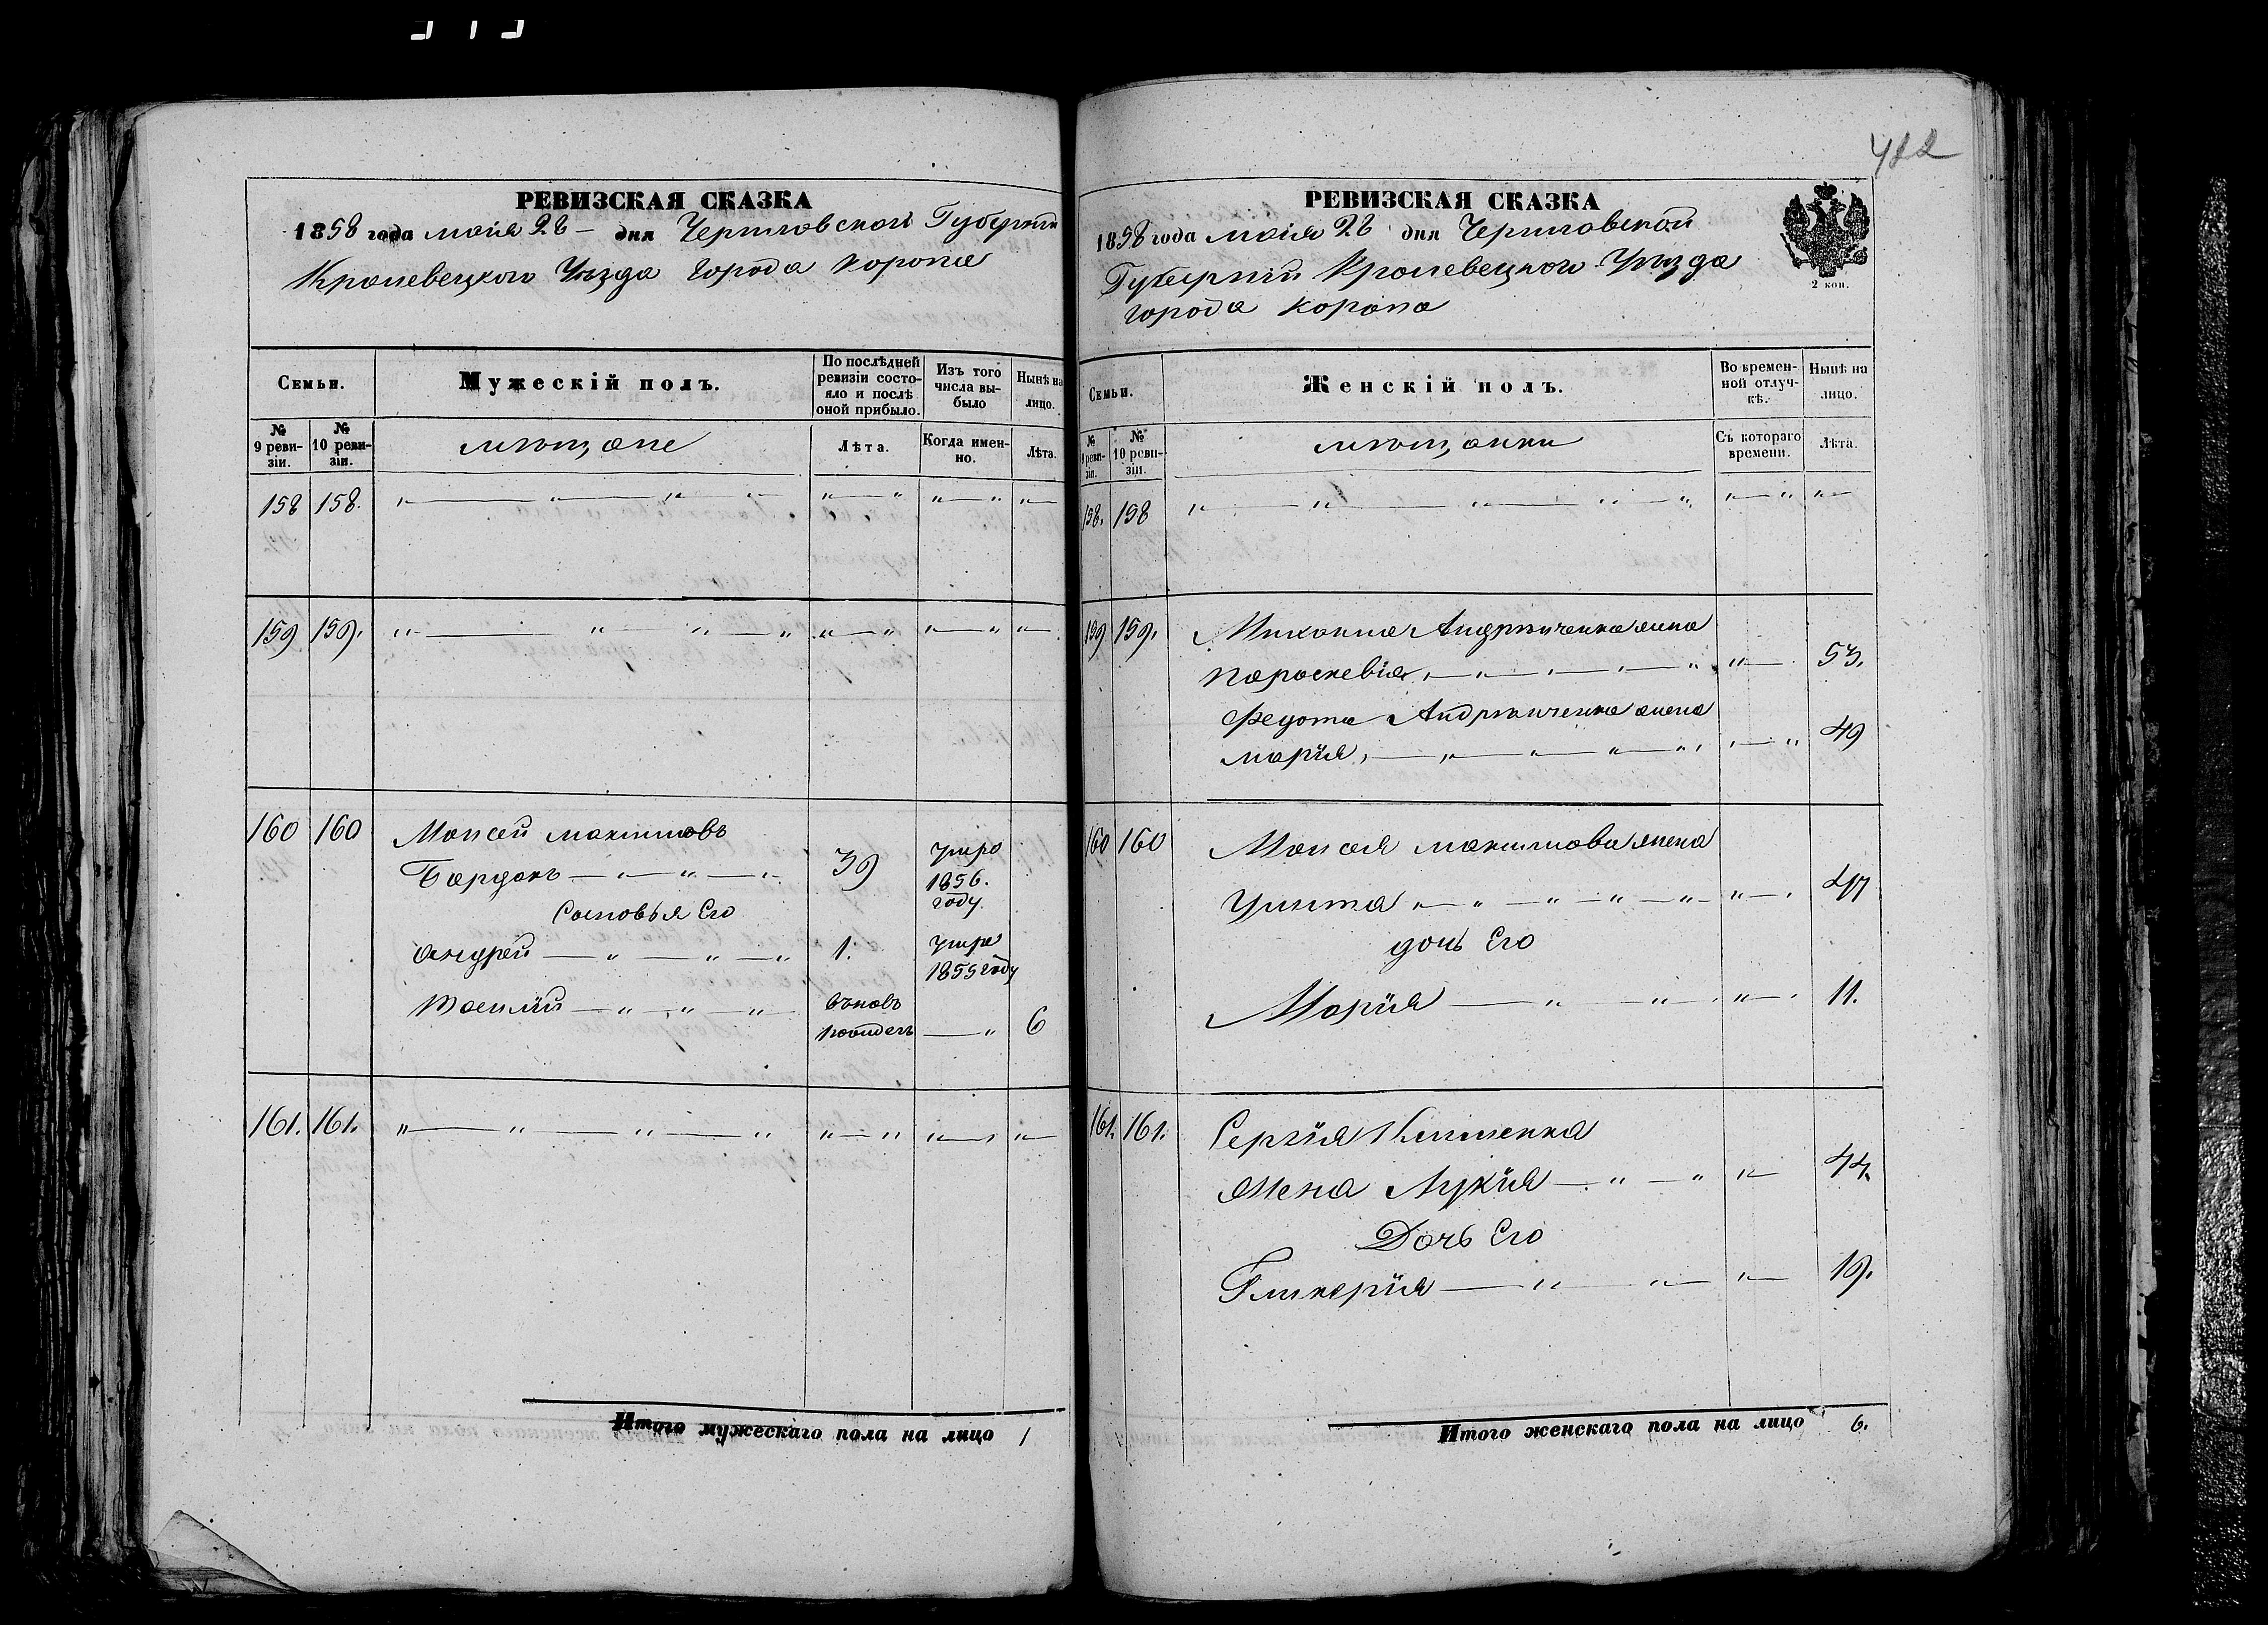 482
РЕВИЗСКАЯ СКАЗКА
1858 года маія 28 – дня Черниговской Губерніи
Кролевецкого Уѣзда города Коропа
Семьи.
Мужескій полъ.
По послѣдней ревизіи состояло и послѣ оной прибыло.
Изъ того числа выбыло
Нынѣ на лицо.
№ 9 ревизіи.
№ 10 ревизіи.
мѣщане
Лѣта.
Когда именно.
Лѣта.
158 158.
159 159.
160 160 Моисей Максимовъ
Бардакъ 39 умре 1856. году
Сыновья Его
Андрей 1. умре 1855 году
Василій вновь рожденъ 6
161. 161.
Итого мужескаго пола на лицо 1
РЕВИЗСКАЯ СКАЗКА
1858 года маія 28 дня Черниговской
Губерніи Кролевецкого Уѣзда
города Коропа
2 коп.
Семьи.
Женскій полъ.
Во временной отлучкѣ.
Нынѣ на лицо.
№ 9 ревизіи.
№ 10 ревизіи.
мѣщанки
Съ котораго времени.
Лѣта.
158. 158
159 159. Андрѣиченка жена
Параскевія 53.
Федота Андрѣиченка жена
Марія 49
160 160 Моисея Максимова жена
Улита 47
дочь Его
Марія 11.
161. 161. Сергія
жена Лукія 44.
Дочь Его
Гликерія 19.
Итого женскаго пола на лицо 6.